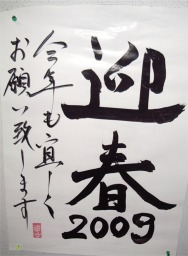 迎春
2009
今年も宜しく
お願い致します